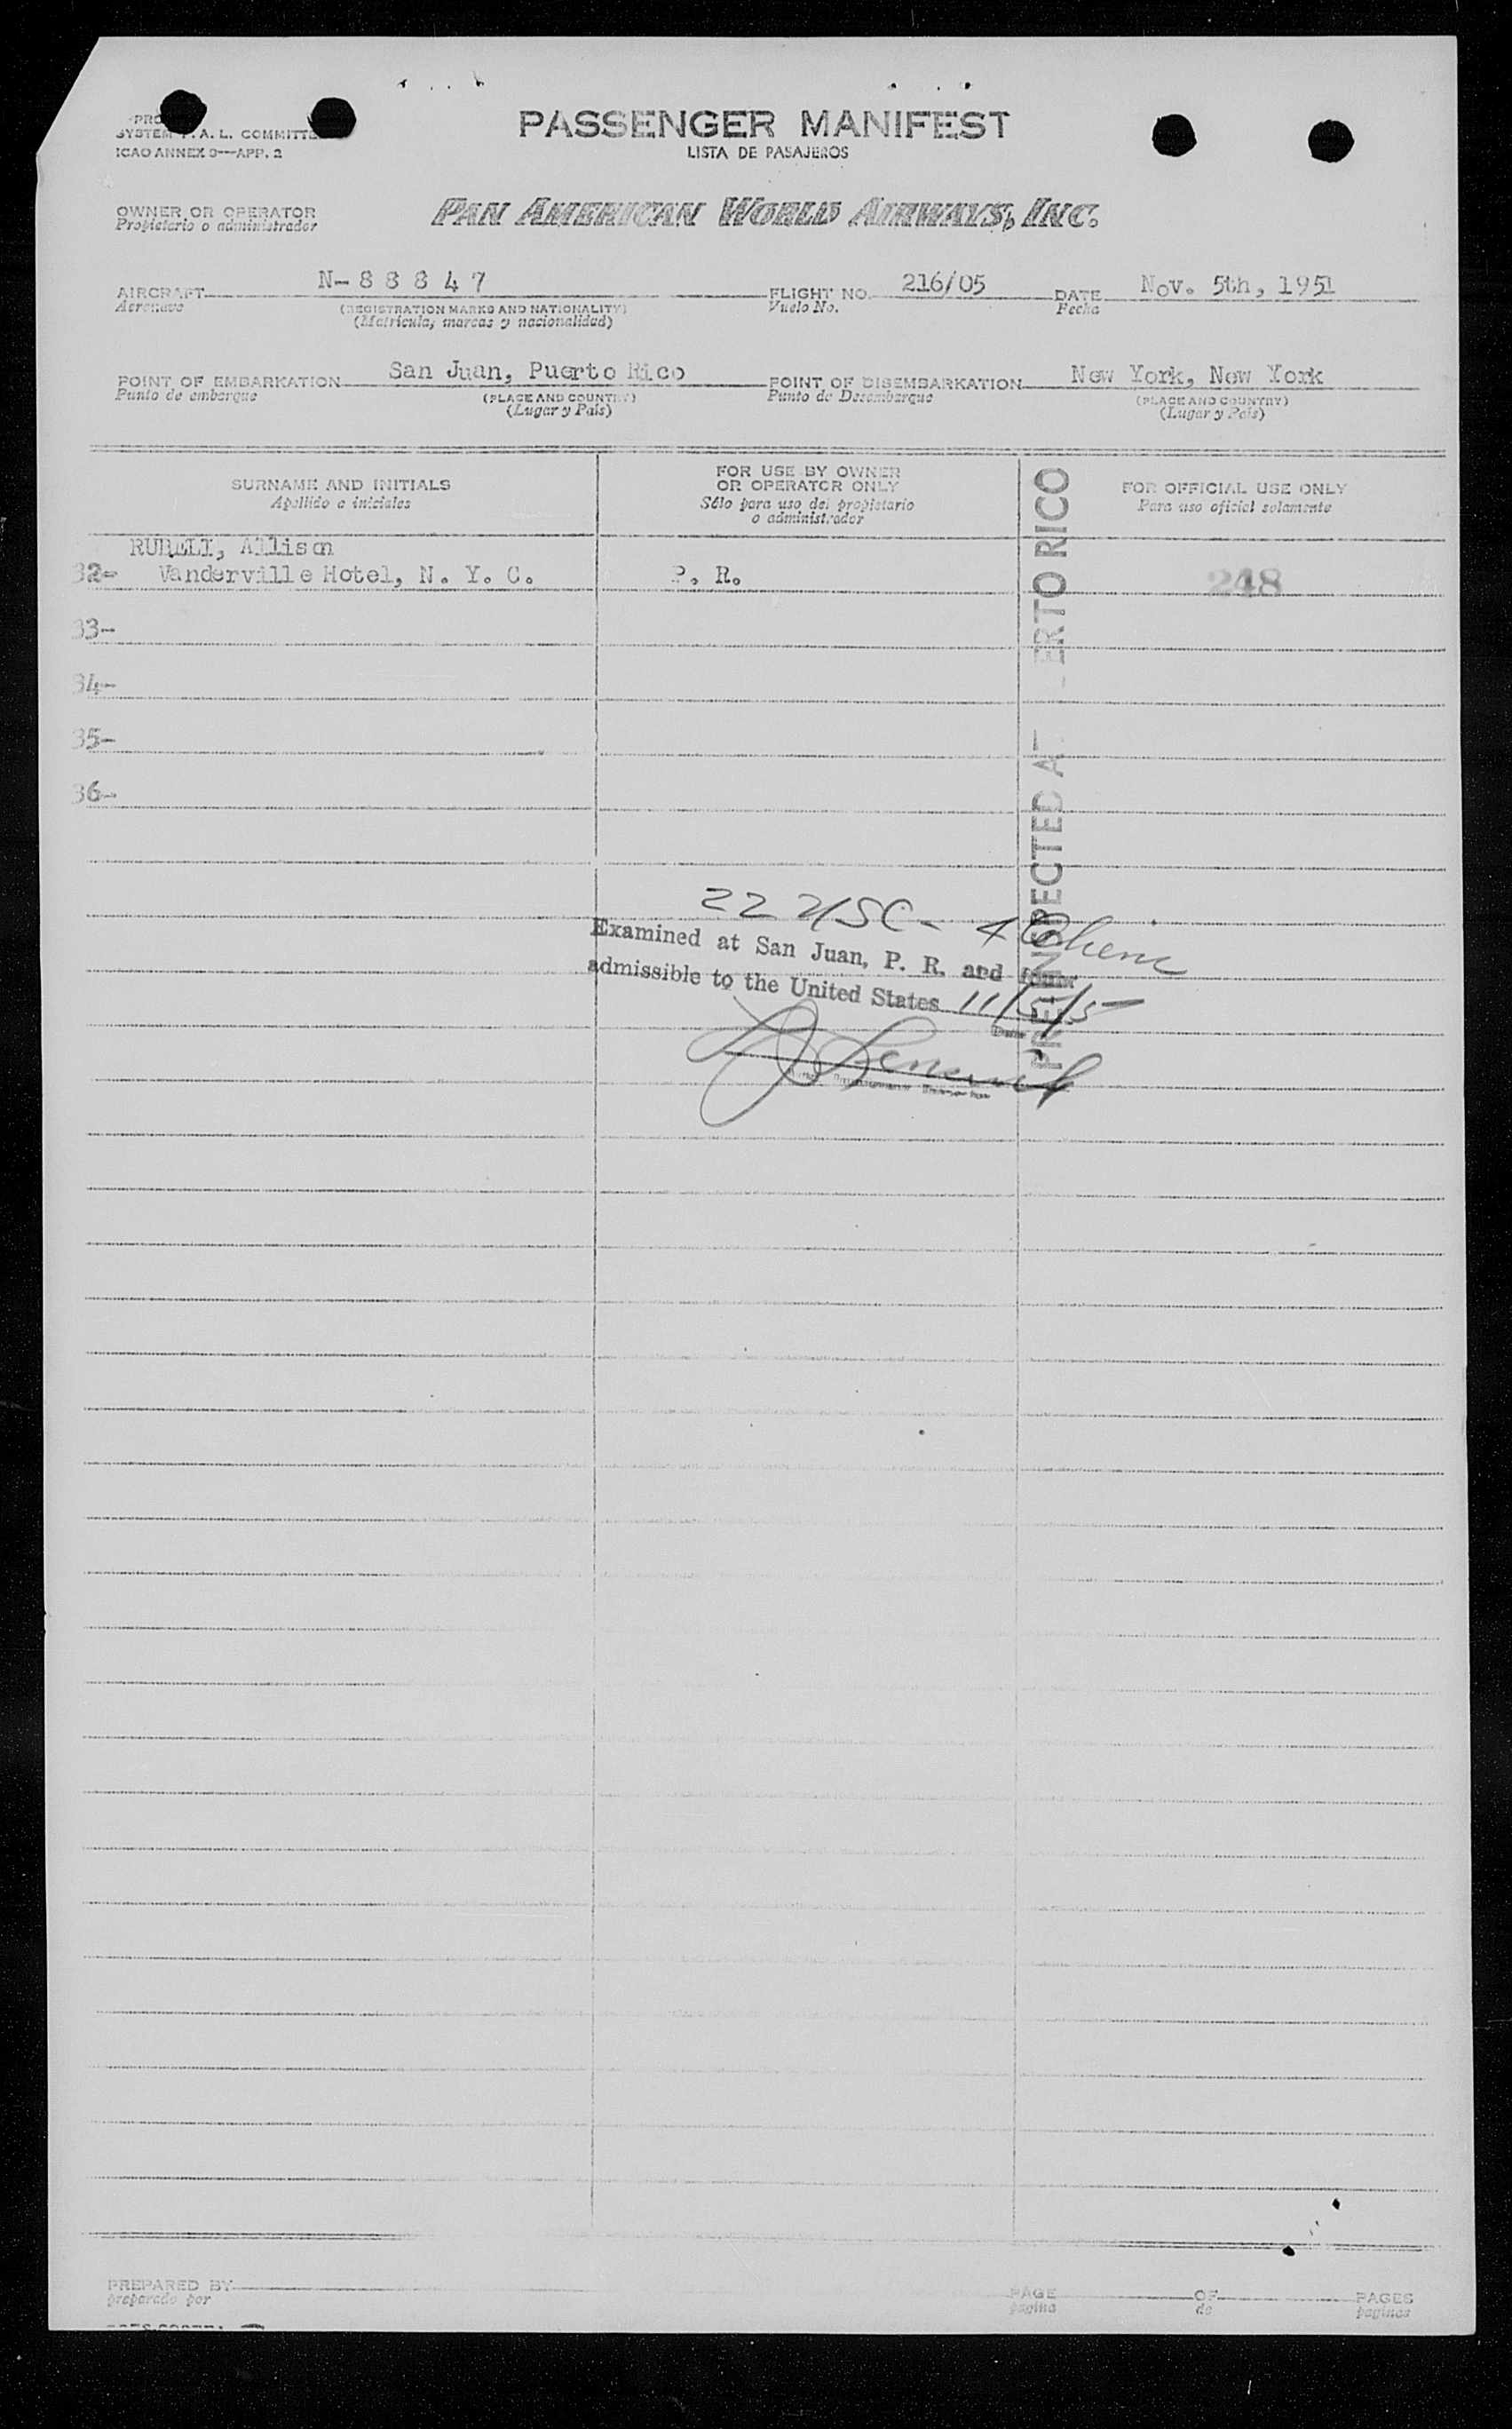 SYSTEM F. A. L. COMMITTE
ICAO ANNEX 9—APP. 2
PASSENGER MANIFEST
LISTA DE PASAJEROS
OWNER OR OPERATOR
Propietario o administrador
PAN AMERICAN WORLD AIRWAYS, INC.
AIRCRAFT N-88847 FLIGHT NO. 216/05 DATE Nov. 5th, 1951
Aeronave (REGISTRATION MARKS AND NATIONALITY) Vuelo No. Fecha
(Matricula, marcas y nacionalidad)
POINT OF EMBARKATION San Juan, Puerto Rico POINT OF DISEMBARKATION New York, New York
Punto de embarque (PLACE AND COUNTRY) Punto de Desembarque (PLACE AND COUNTRY)
(Lugar y País) (Lugar y País)
SURNAME AND INITIALS
Apellido e iniciales
FOR USE BY OWNER
OR OPERATOR ONLY
Sólo para uso del propietario
o administrador
FOR OFFICIAL USE ONLY
Para uso oficial solamente
Allison
32- Vanderville Hotel, N. Y. C. P. R. 248
33-
34-
35-
36-
PREINSPECTED AT ERTO RICO
22 USC - 4
Examined at San Juan, P. R. and found
admissible to the United States 11/5/5
PREPARED BY PAGE OF PAGES
preparado por pagina de paginas